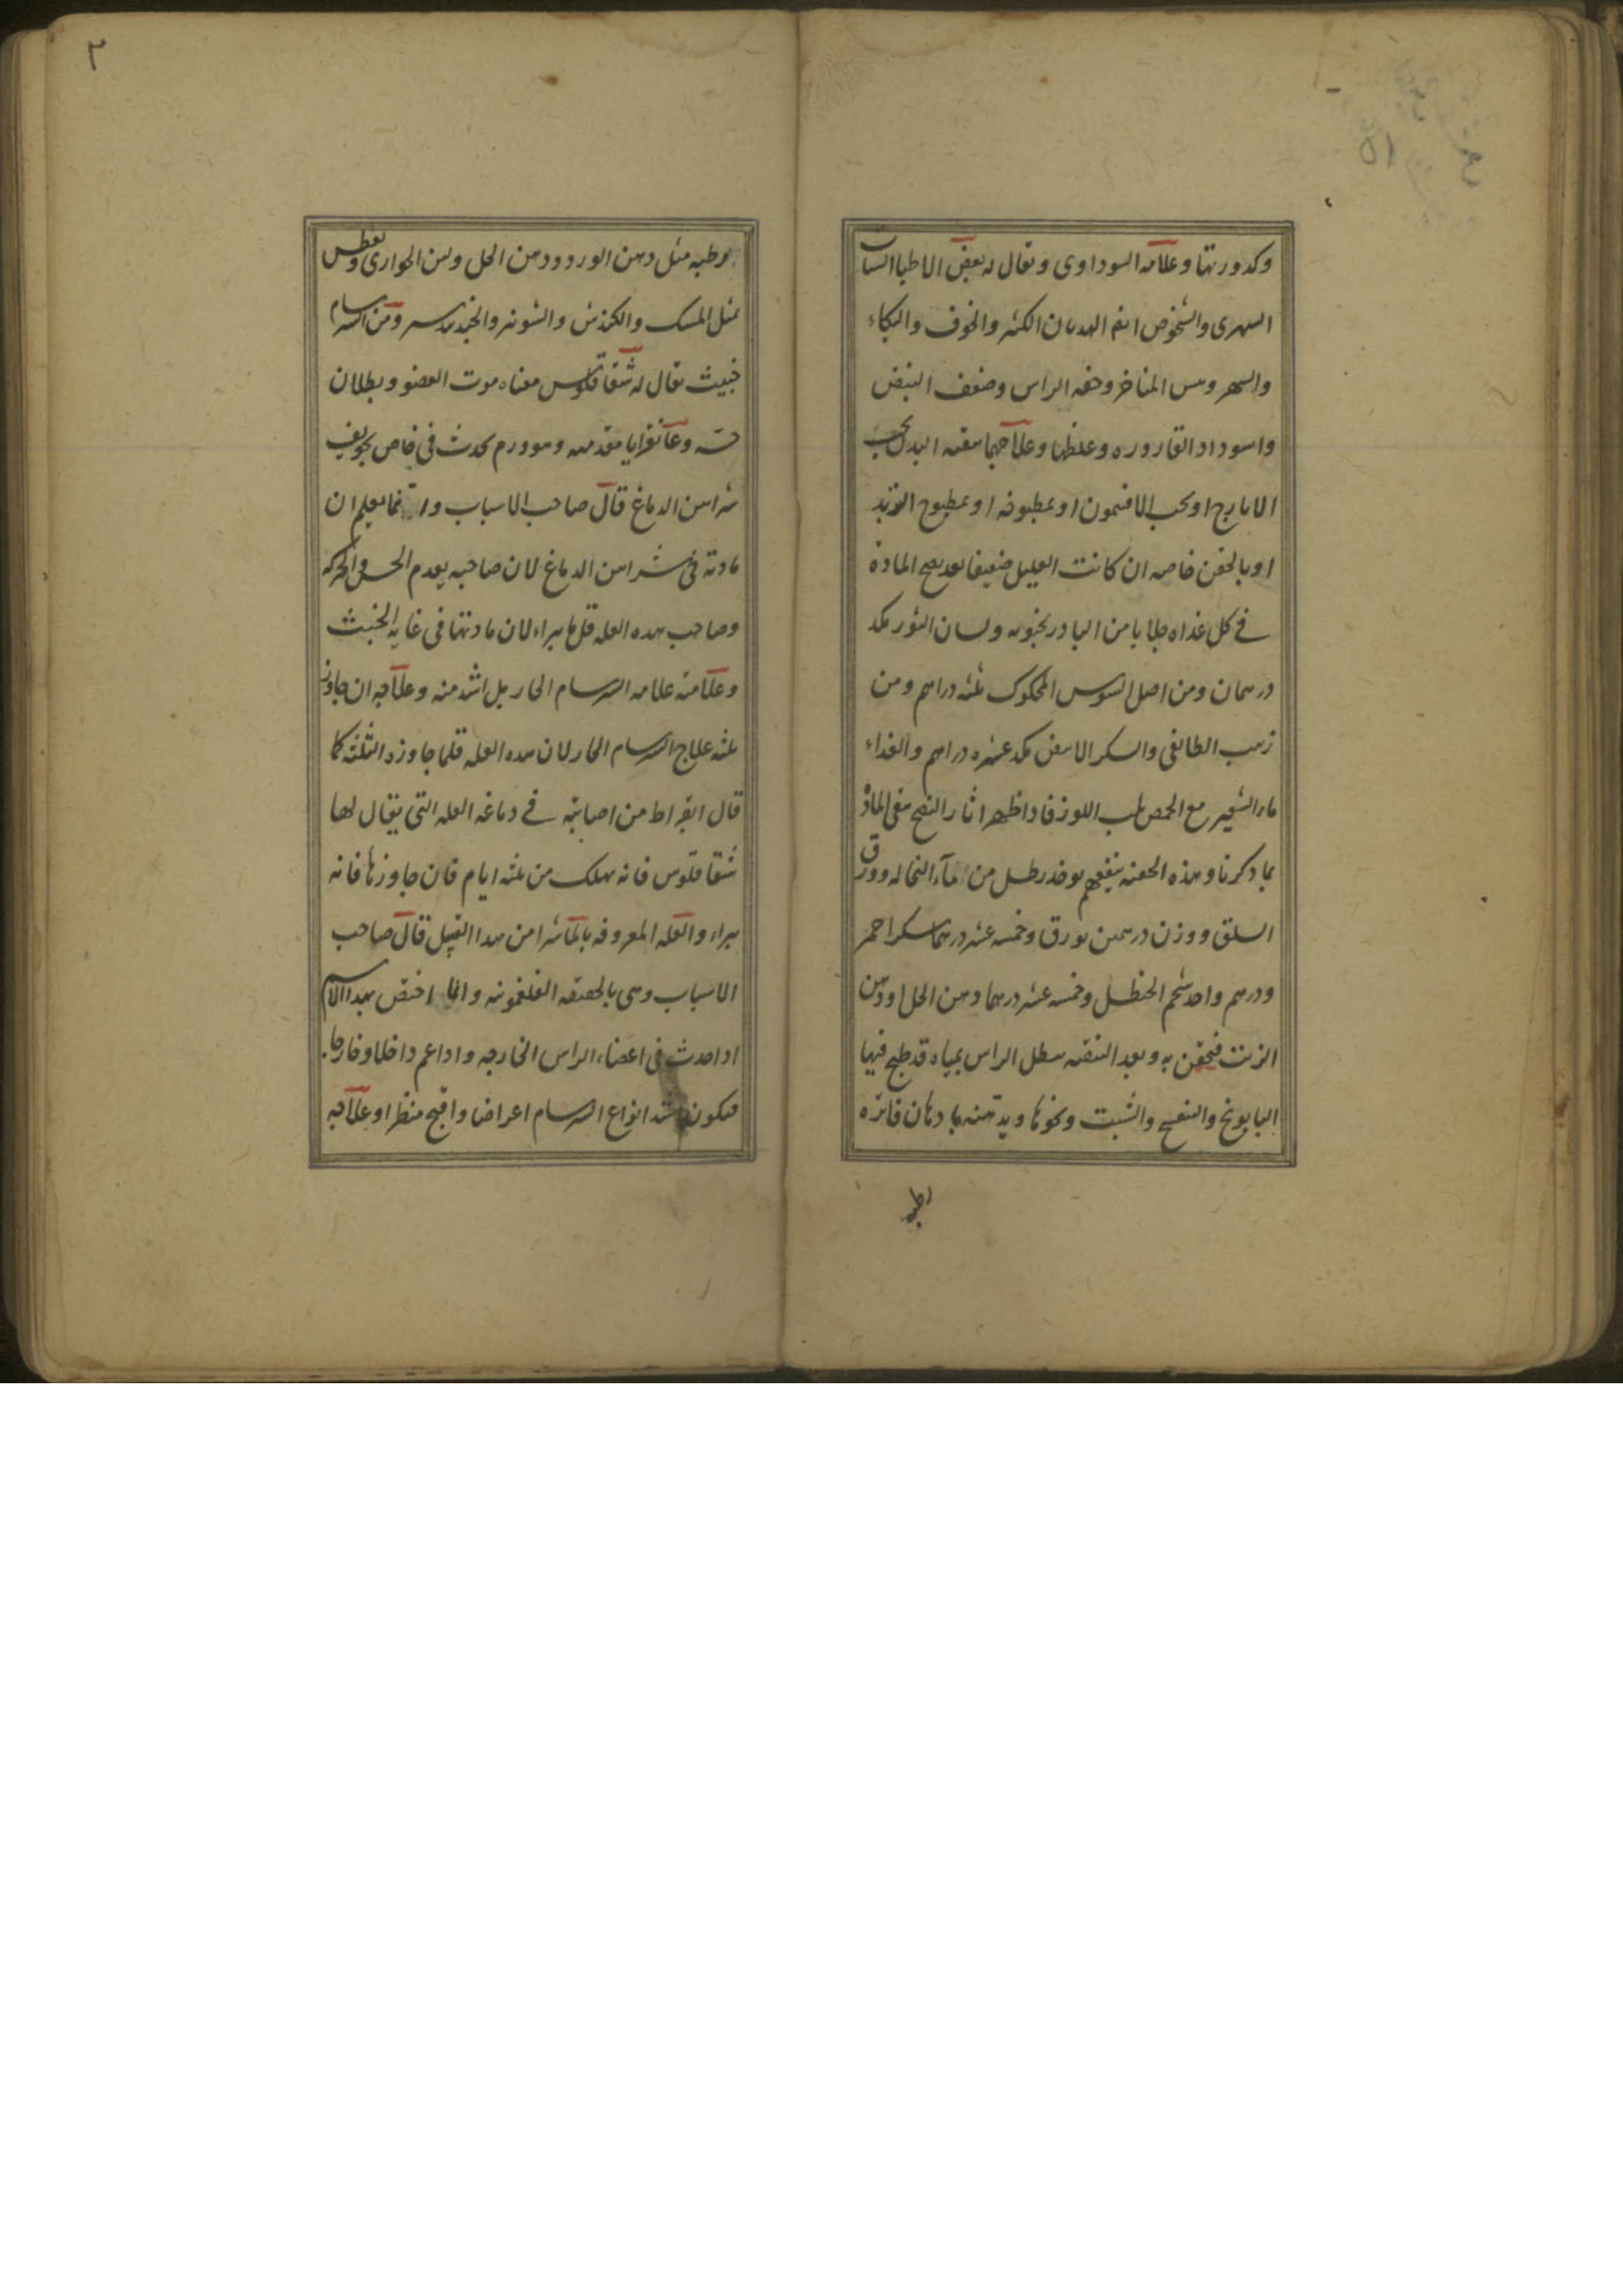 وكدورتها وعلامه السوداوى ويقال له بعض الاطبا السبات
السهرى والشخوص ايضا الهديان الكثير والخوف والبكاء
والسهر ويبس المناخر وخفه الراس وضعف النبض
واسوداد القاروره وغلظها وعلاجهما تنقيه البدن بحب
الايارج او بحب الافتيمون او بمطبوخه او بمطبوخ التربد
او بالحقن خاصه ان كانت العليل ضعيفا بعد نضج المادة
فى كل غداه جلابا من البادرنجبويه ولسان الثور مكد
درهمان ومن اصل السوس المحكوك ثلثه دراهم ومن
زبيب الطائفى والسكر الابيض مكد عشره دراهم والغداء
ماء الشعير مع الحمص بلب اللوز فاذا ظهر اثار النضج ينقى المادة
بما ذكرنا وهذه الحقنه ينفعهم يوخذ رطل من ماء النخاله وورق
السلق ووزن درهمين بورق وخمسه عشر درهما سكر احمر
ودرهم واحد شحم الحنظل وخمسه عشر درهما دهن الحل او دهن
الزيت فيحقن به وبعد التنقيه ينطل الراس بمياه قد طبخ فيها
البابونج والبنفسج والشبت ونحوها ويدهنه بادهان فاتره
رطبه
٢
رطبه مثل دهن الورد ودهن الحل ولبن الجوارى ويعطس
بمثل المسك والكندش والشونيز والجندبيدستر ومن السرسام
خبيث يقال له شقاقلوس معناه موت العضو وبطلان
حسه وغانغرايا مقدمته وهو ورم يحدث فى خاص تجويف
شرايين الدماغ قال صاحب الاسباب وانما يعلم ان
مادته فى شرايين الدماغ لان صاحبه يعدم الحس والحركه
وصاحب هده العله قل ما يبراء لان مادتها فى غايه الخبث
وعلامته علامه السرسام الحار بل اشد منه وعلاجه ان جاوز
ثلثه علاج السرسام الحار لان هده العله قلما جاوزد الثلثه كما
قال ابقراط من اصابته فى دماغه العله التى يقال لها
شقاقلوس فانه يهلك من ثلثه ايام فان جاوزها فانه
يبراء والعله المعروفه بالماشرا من هدا القبيل قال صاحب
الاسباب وهى بالحقيقه الفلغمونيه وانما اختص بهدا الاسم
ادا حدث فى اعضاء الراس الخارجه وادا عم داخلا وخارجا
فيكون اشد انواع السرسام اعراضا واقبح منظرا وعلاجه